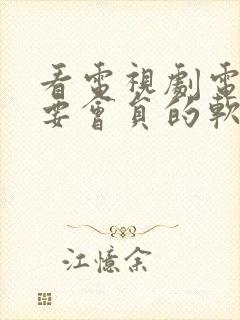 看電視劇電
要會員的軟
江憶余